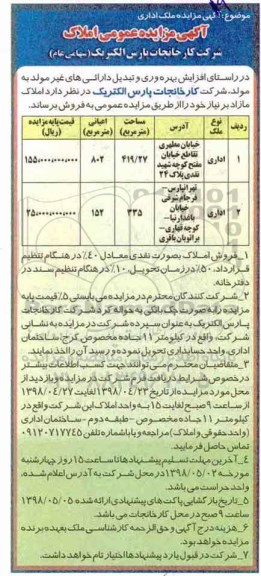 موضوع: آگهی مزایده ملک اداری
آگهی مزایده عمومی املاک
شرکت کارخانجات پارس الکتریک (سهامی عام)
در راستای افزایش بهره وری و تبدیل دارائی های غیر مولد به
مولد، شرکت کارخانجات پارس الکتریک در نظر دارد املاک
مازاد بر نیاز خود را از طریق مزایده عمومی به فروش برساند.
ردیف نوع ملک آدرس مساحت (مترمربع) اعیانی (مترمربع) قیمت پایه مزایده (ریال)
۱ اداری خیابان مطهری تقاطع خیابان مفتح کوچه شهید نقدی پلاک ۲۴ ۴۱۹/۲۷ ۸۰۲ ۱۵۵،۰۰۰،۰۰۰،۰۰۰
۲ اداری تهرانپارس فرجام شرقی خیابان باغدارنیا کوچه قهاری ۳۳۵ ۱۵۲ ۲۵،۰۰۰،۰۰۰،۰۰۰
۱_ فروش املاک بصورت نقدی معادل ۴۰٪ در هنگام تنظیم
قرارداد، ۵۰٪ در زمان تحویل، ۱۰٪ در هنگام تنظیم سند در
دفترخانه.
۲_ شرکت کنندگان محترم در مزایده می بایستی ۵٪ قیمت پایه
مزایده به صورت چک بانکی به حواله کرد شرکت کارخانجات
پارس الکتریک به عنوان سپرده شرکت در مزایده به نشانی
شرکت، واقع در کیلومتر ۱۱ جاده مخصوص کرج، ساختمان
اداری، واحد حسابداری تحویل نموده و رسید آن را اخذ نمایند.
۳_ متقاضیان محترم می توانند جهت کسب اطلاعات بیشتر
در خصوص شرایط دریافت فرم شرکت در مزایده و بازدید از
محل مورد مزایده از تاریخ ۱۳۹۸/۰۴/۲۲ لغایت ۱۳۹۸/۰۴/۲۷
از ساعت ۹ صبح لغایت ۱۵ به واحد املاک این شرکت واقع در
کیلومتر ۱۱ جاده مخصوص - طبقه دوم - ساختمان اداری
(واحد حقوقی و املاک) مراجعه و یا با شماره تلفن ۰۹۱۲۰۷۱۷۷۴۵
تماس حاصل فرمایید.
۴_ آخرین مهلت تسلیم پیشنهادها تا ساعت ۱۵ روز چهارشنبه
مورخه ۱۳۹۸/۰۵/۰۲ در محل شرکت به آدرس اعلام شده،
واحد حراست می باشد.
۵_ تاریخ بازگشایی پاکت های پیشنهادی ارائه شده ۱۳۹۸/۰۵/۰۵
ساعت ۹ صبح در محل کارخانجات می باشد.
۶_ هزینه درج آگهی و حق الزحمه کارشناسی ملک بعهده برنده
مزایده خواهد بود.
۷_ شرکت در قبول یا رد پیشنهادها اختیار تام خواهد داشت.